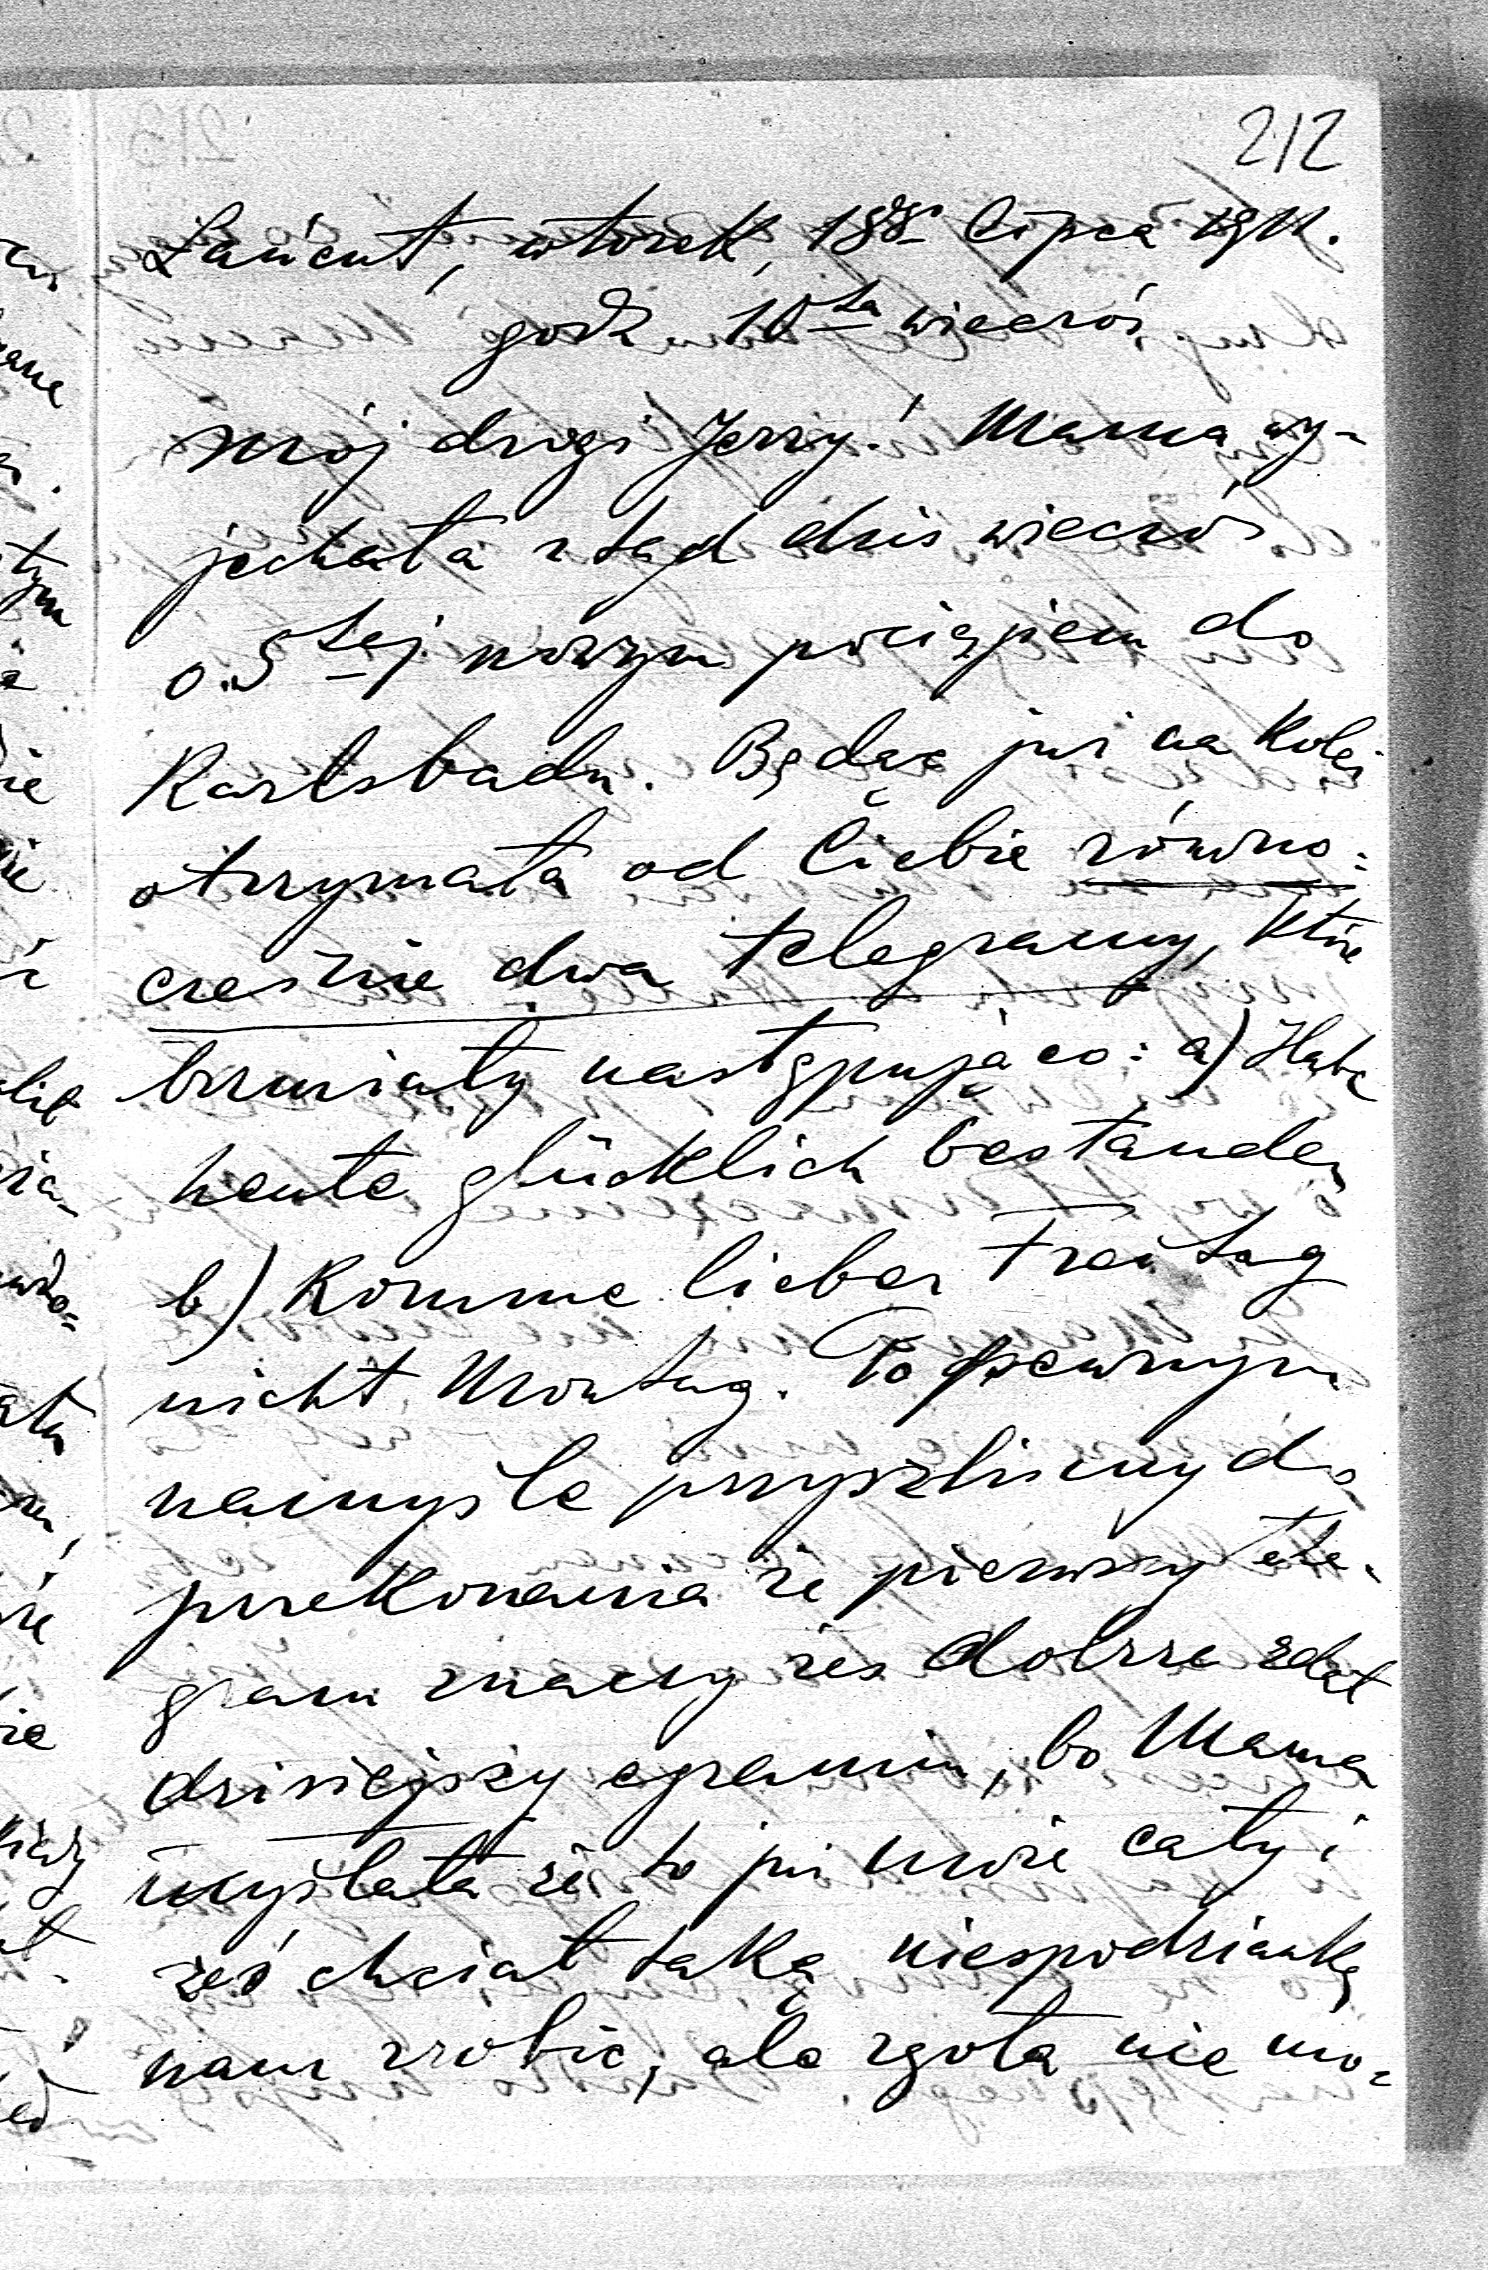 212
Łańcut, wtorek, 18go lipca 1911.
godz 10ta wieczór
Mój drogi Jerzy! Mama wy-
jechała ztąd dziś wieczór
o 5tej nowym pociągiem do
Karlsbadu. Będąc już na kolei
otrzymała od Ciebie równo=
cześnie dwa telegramy, które
brzmiały następująco: a) Habe
heute glücklich bestanden
b) Komme lieber Freitag
nicht Montag. Po pewnym
namyśle przyszliśmy do
przekonania że pierwszy tele-
gram znaczy żeś dobrze zdał
dzisiejszy egzamin, bo Mama
myślała że to już może cały i
żeś chciał taką niespodziankę
nam zrobić, ale zgoła nie mo-